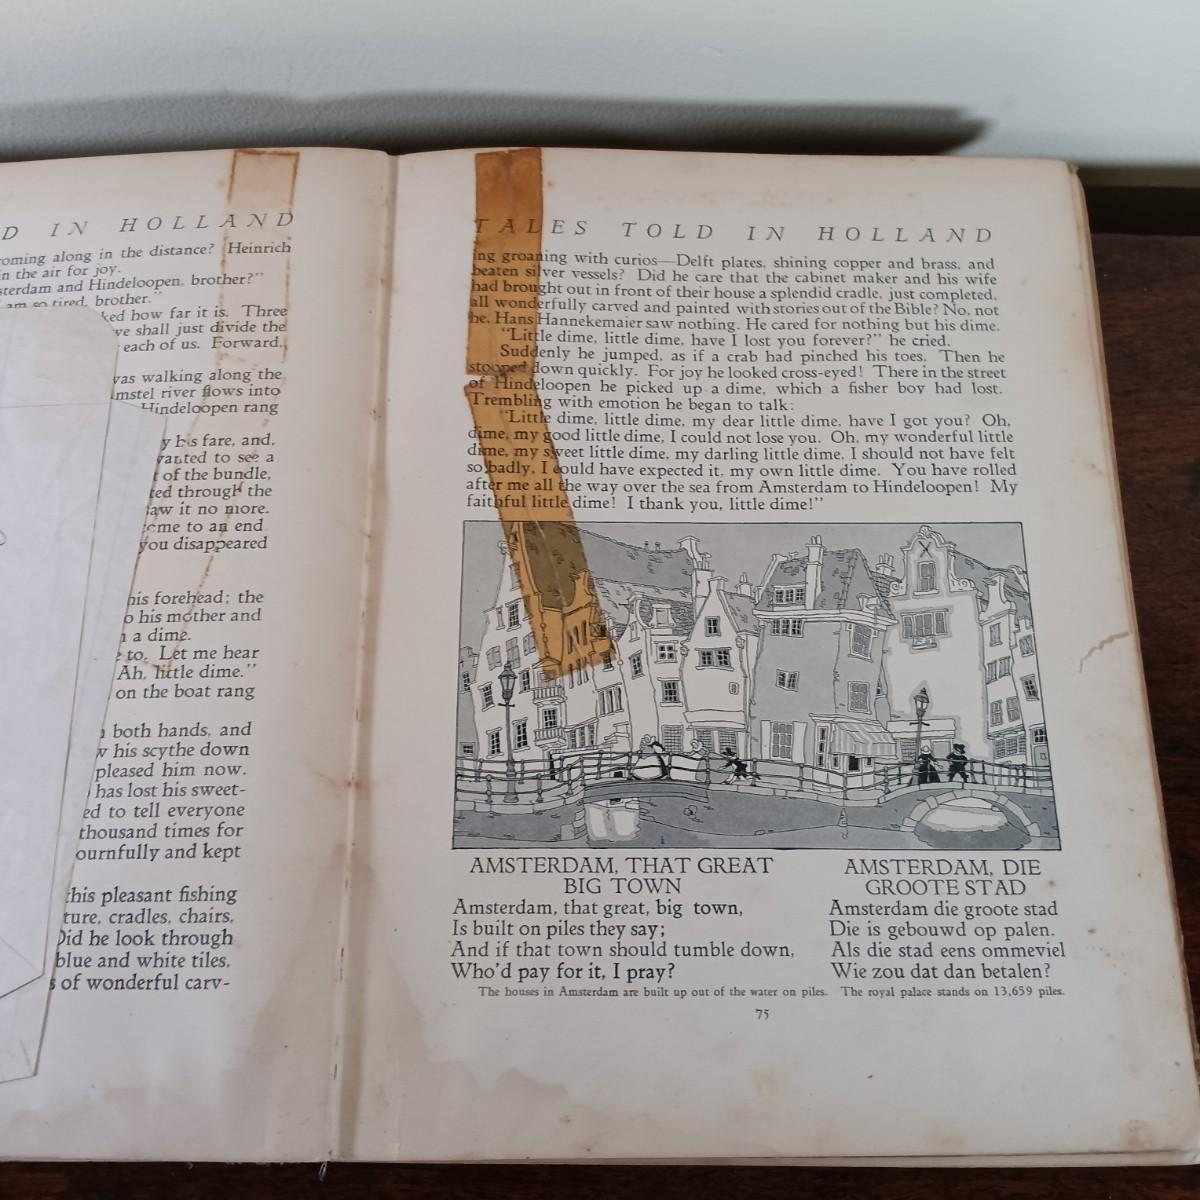 D IN HOLLAND
oming along in the distance? Heinrich
in the air for joy.
sterdam and Hindeloopen, brother?"
am so tired, brother."
ked how far it is. Three
we shall just divide the
each of us. Forward,
was walking along the
mstel river flows into
Hindeloopen rang
y his fare, and,
vanted to see a
t of the bundle,
ted through the
saw it no more.
ome to an end
you disappeared
his forehead; the
o his mother and
n a dime.
e to. Let me hear
Ah, little dime."
on the boat rang
n both hands, and
w his scythe down
pleased him now.
has lost his sweet-
ed to tell everyone
thousand times for
ournfully and kept
this pleasant fishing
ture, cradles, chairs,
Did he look through
blue and white tiles,
s of wonderful carv-
TALES TOLD IN HOLLAND
ing groaning with curios—Delft plates, shining copper and brass, and
beaten silver vessels? Did he care that the cabinet maker and his wife
had brought out in front of their house a splendid cradle, just completed,
all wonderfully carved and painted with stories out of the Bible? No, not
he. Hans Hannekemaier saw nothing. He cared for nothing but his dime.
"Little dime, little dime, have I lost you forever?" he cried.
Suddenly he jumped, as if a crab had pinched his toes. Then he
stooped down quickly. For joy he looked cross-eyed! There in the street
of Hindeloopen he picked up a dime, which a fisher boy had lost.
Trembling with emotion he began to talk:
"Little dime, little dime, my dear little dime, have I got you? Oh,
dime, my good little dime, I could not lose you. Oh, my wonderful little
dime, my sweet little dime, my darling little dime, I should not have felt
so badly, I could have expected it, my own little dime. You have rolled
after me all the way over the sea from Amsterdam to Hindeloopen! My
faithful little dime! I thank you, little dime!"
AMSTERDAM, THAT GREAT
BIG TOWN
Amsterdam, that great, big town,
Is built on piles they say;
And if that town should tumble down,
Who'd pay for it, I pray?
AMSTERDAM, DIE
GROOTE STAD
Amsterdam die groote stad
Die is gebouwd op palen.
Als die stad eens ommeviel
Wie zou dat dan betalen?
The houses in Amsterdam are built up out of the water on piles. The royal palace stands on 13,659 piles.
75